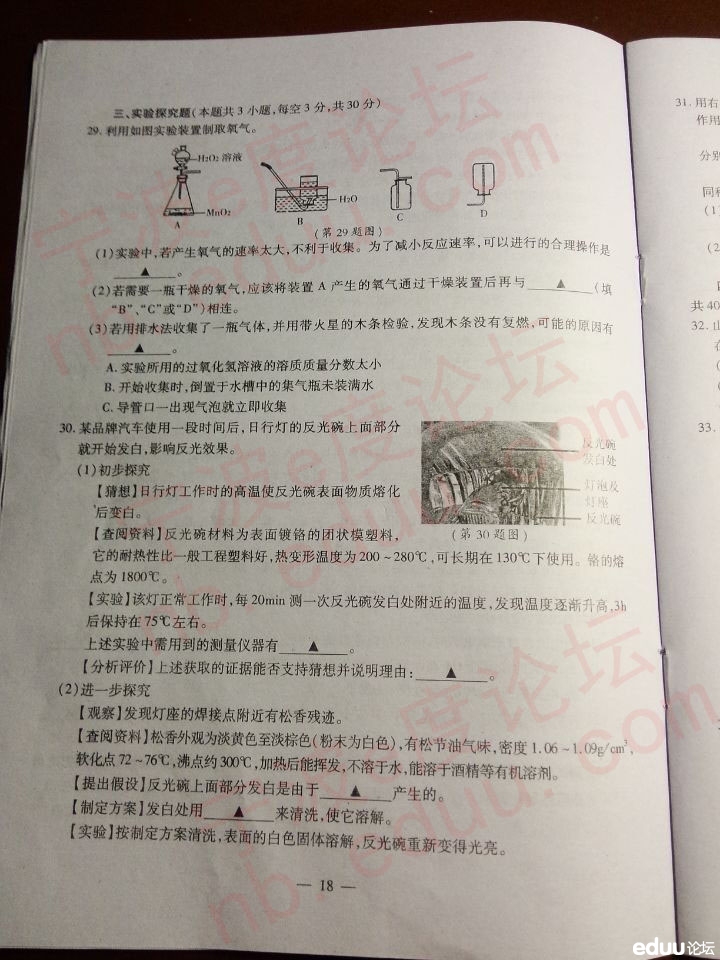 三、实验探究题(本题共3小题,每空3分,共30分)
29.利用如图实验装置制取氧气。
H₂O₂ 溶液
MnO₂
H₂O
A
B
C
D
(第29题图)
(1)实验中,若产生氧气的速率太大,不利于收集。为了减小反应速率,可以进行的合理操作是
▲。
(2)若需要一瓶干燥的氧气,应该将装置 A 产生的氧气通过干燥装置后再与 ▲ (填
“B”、“C”或“D”)相连。
(3)若用排水法收集了一瓶气体,并用带火星的木条检验,发现木条没有复燃,可能的原因有
▲。
A.实验所用的过氧化氢溶液的溶质质量分数太小
B.开始收集时,倒置于水槽中的集气瓶未装满水
C.导管口一出现气泡就立即收集
30.某品牌汽车使用一段时间后,日行灯的反光碗上面部分
就开始发白,影响反光效果。
(1)初步探究
【猜想】日行灯工作时的高温使反光碗表面物质熔化
后变白。
反光碗
发白处
灯泡及
灯座
反光碗
(第30题图)
【查阅资料】反光碗材料为表面镀铬的团状模塑料,
它的耐热性比一般工程塑料好,热变形温度为200~280℃,可长期在130℃下使用。铬的熔
点为1800℃。
【实验】该灯正常工作时,每20min测一次反光碗发白处附近的温度,发现温度逐渐升高,3h
后保持在75℃左右。
上述实验中需用到的测量仪器有 ▲ 。
【分析评价】上述获取的证据能否支持猜想并说明理由: ▲ 。
(2)进一步探究
【观察】发现灯座的焊接点附近有松香残迹。
【查阅资料】松香外观为淡黄色至淡棕色(粉末为白色),有松节油气味,密度1.06~1.09g/cm³,
软化点72~76℃,沸点约300℃,加热后能挥发,不溶于水,能溶于酒精等有机溶剂。
【提出假设】反光碗上面部分发白是由于 ▲ 产生的。
【制定方案】发白处用 ▲ 来清洗,使它溶解。
【实验】按制定方案清洗,表面的白色固体溶解,反光碗重新变得光亮。
— 18 —
31.用右
作用
分别
同种
(1)
(2)
共40
32.
33.
宁波e度论坛
nb.eduu.com
宁波e度论坛
nb.eduu.com
eduu论坛